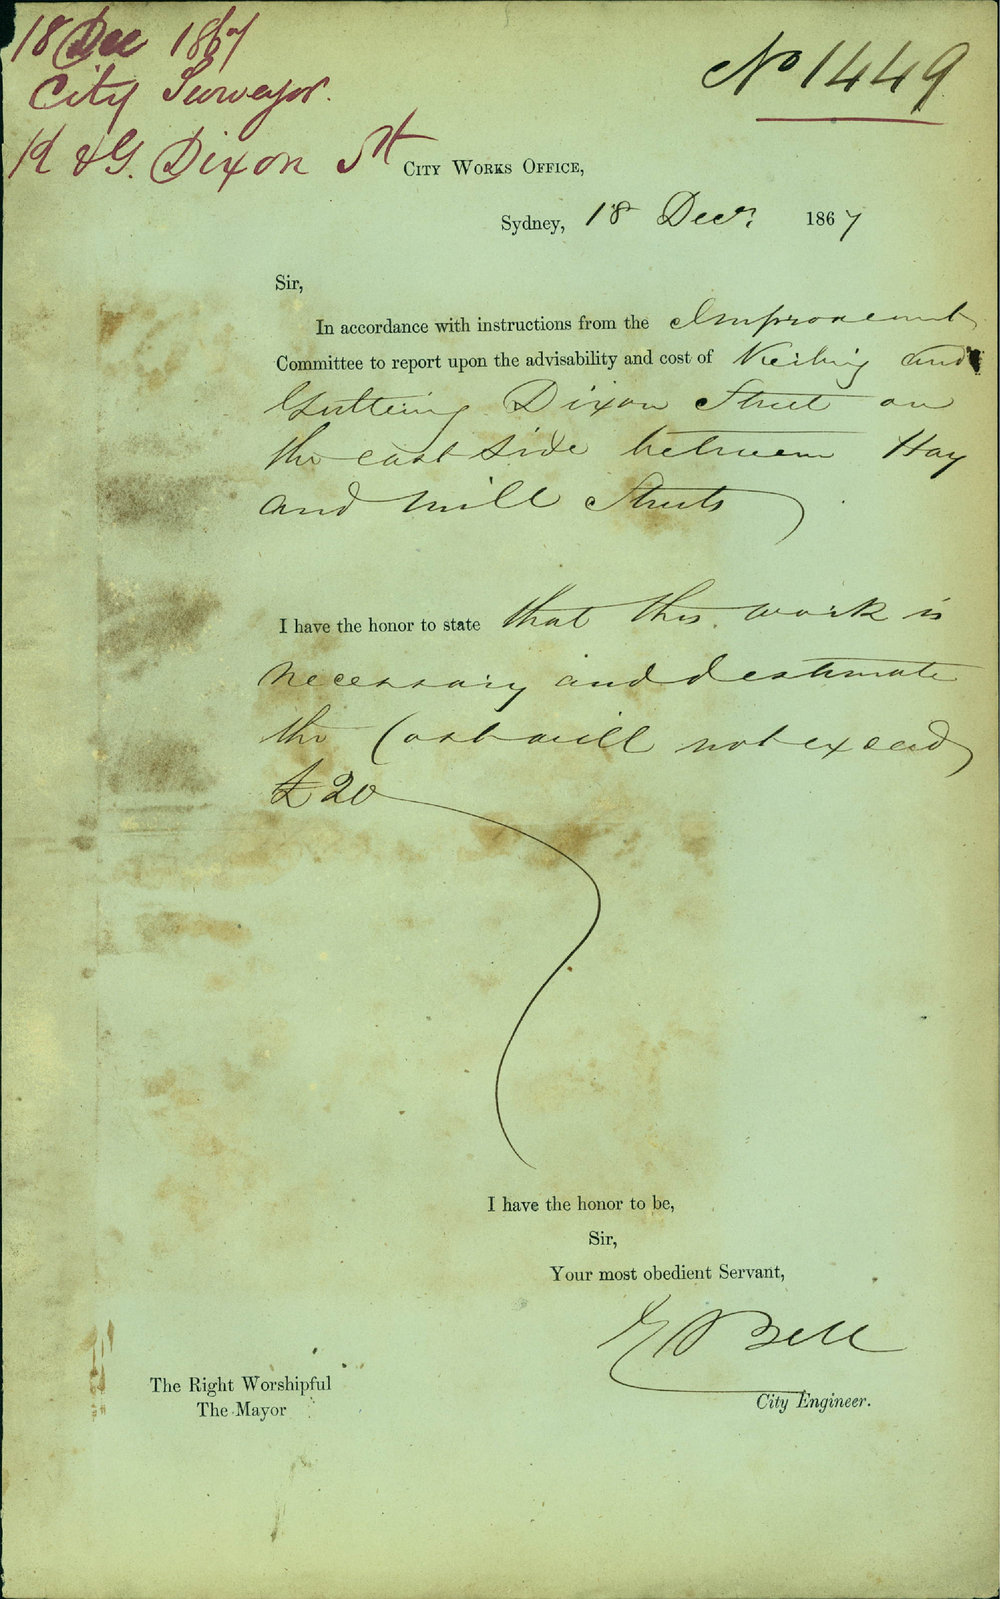 18 Dec 1867
City Surveyor.
K & G. Dixon St
No 1449
City Works Office,
Sydney, 18 Decr. 1867
Sir,
In accordance with instructions from the Improvement
Committee to report upon the advisability and cost of Kerbing and
Guttering Dixon Street on
the east side between Hay
and Mill Streets
I have the honor to state that this work is
necessary and estimate
the Cost will not exceed
£20
I have the honor to be,
Sir,
Your most obedient Servant,
E Bell
City Engineer.
The Right Worshipful
The Mayor